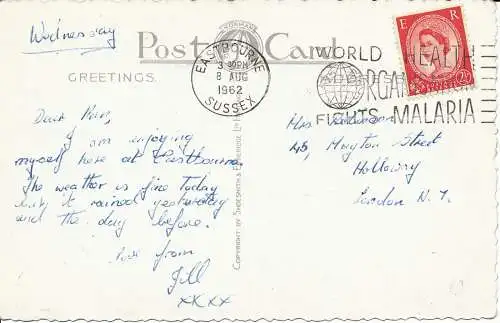 Wednesday
NORMANS
Post Card
GREETINGS.
EASTBOURNE
3 30PM
8 AUG
1962
SUSSEX
WORLD HEALTH
ORGANI
FIGHTS MALARIA
E R
2½
Dear
I am enjoying
myself here at Eastbourne.
The weather is fine today
but it rained yesterday
and the day before.
love from
Jill
xxxx
COPYRIGHT BY SHOESMITH & ETHERIDGE LTD
Mrs
45, Mayton Street
Holloway
London N.7.